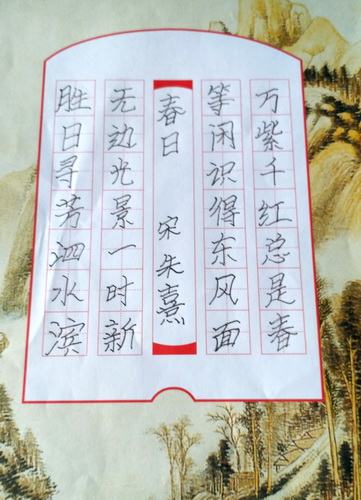 胜日寻芳泗水滨
无边光景一时新
春日 宋朱熹
等闲识得东风面
万紫千红总是春